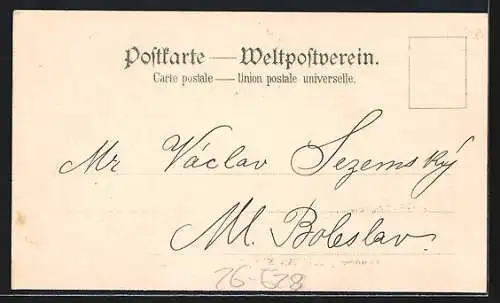 Postkarte — Weltpostverein.
Carte postale — Union postale universelle.
Mr Václav Sezemský
Ml. Boleslav.
26-628